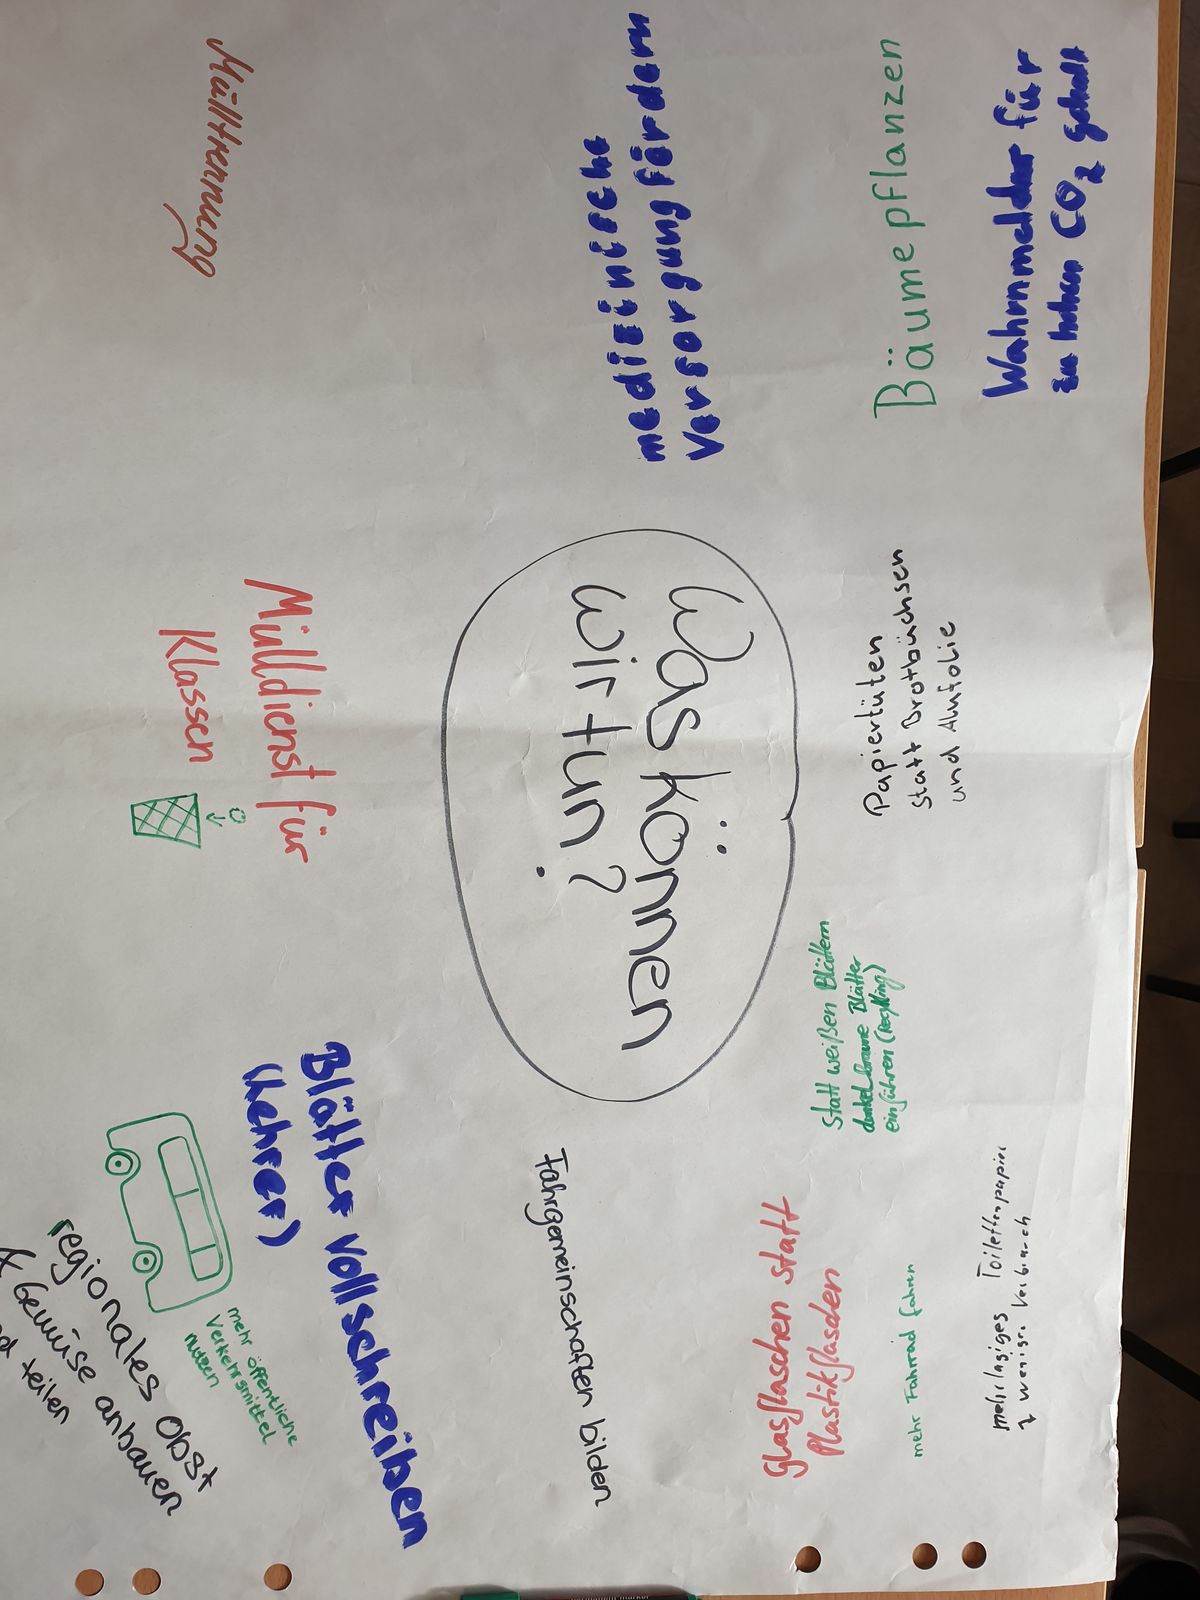 Wahrnmelder für
zu hohen CO2 gehalt
Bäume pflanzen
medizinische
Versorgung fördern
Mülltrennung
Papiertüten
statt Brotbüchsen
und Alufolie
Was können
wir tun?
Mülldienst für
Klassen
statt weißen Blättern
dunkelbraune Blätter
einführen (Recykling)
mehrlagiges Toilettenpapier
Verbrauch
mehr Fahrrad fahren
Glasflaschen statt
Plastikflaschen
Fahrgemeinschaften bilden
Blätter vollschreiben
(Lehrer)
mehr öffentliche
Verkehrsmittel
nutzen
regionales Obst
& Gemüse anbauen
teilen